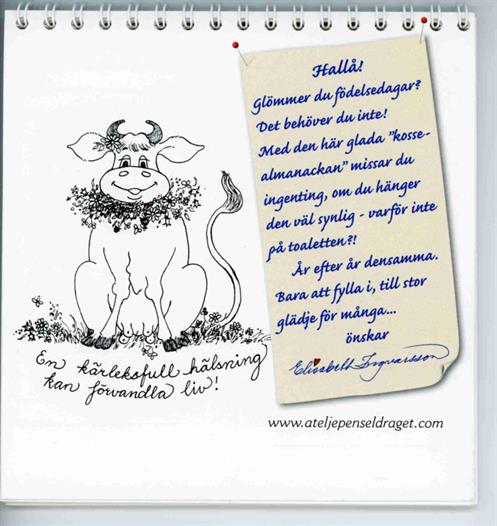 Hallå!
Glömmer du födelsedagar?
Det behöver du inte!
Med den här glada "kosse-
almanackan" missar du
ingenting, om du hänger
den väl synlig - varför inte
på toaletten?!
År efter år densamma.
Bara att fylla i, till stor
glädje för många...
önskar
Elisabeth Ingvarsson
En kärleksfull hälsning
kan förvandla liv!
www.ateljepenseldraget.com